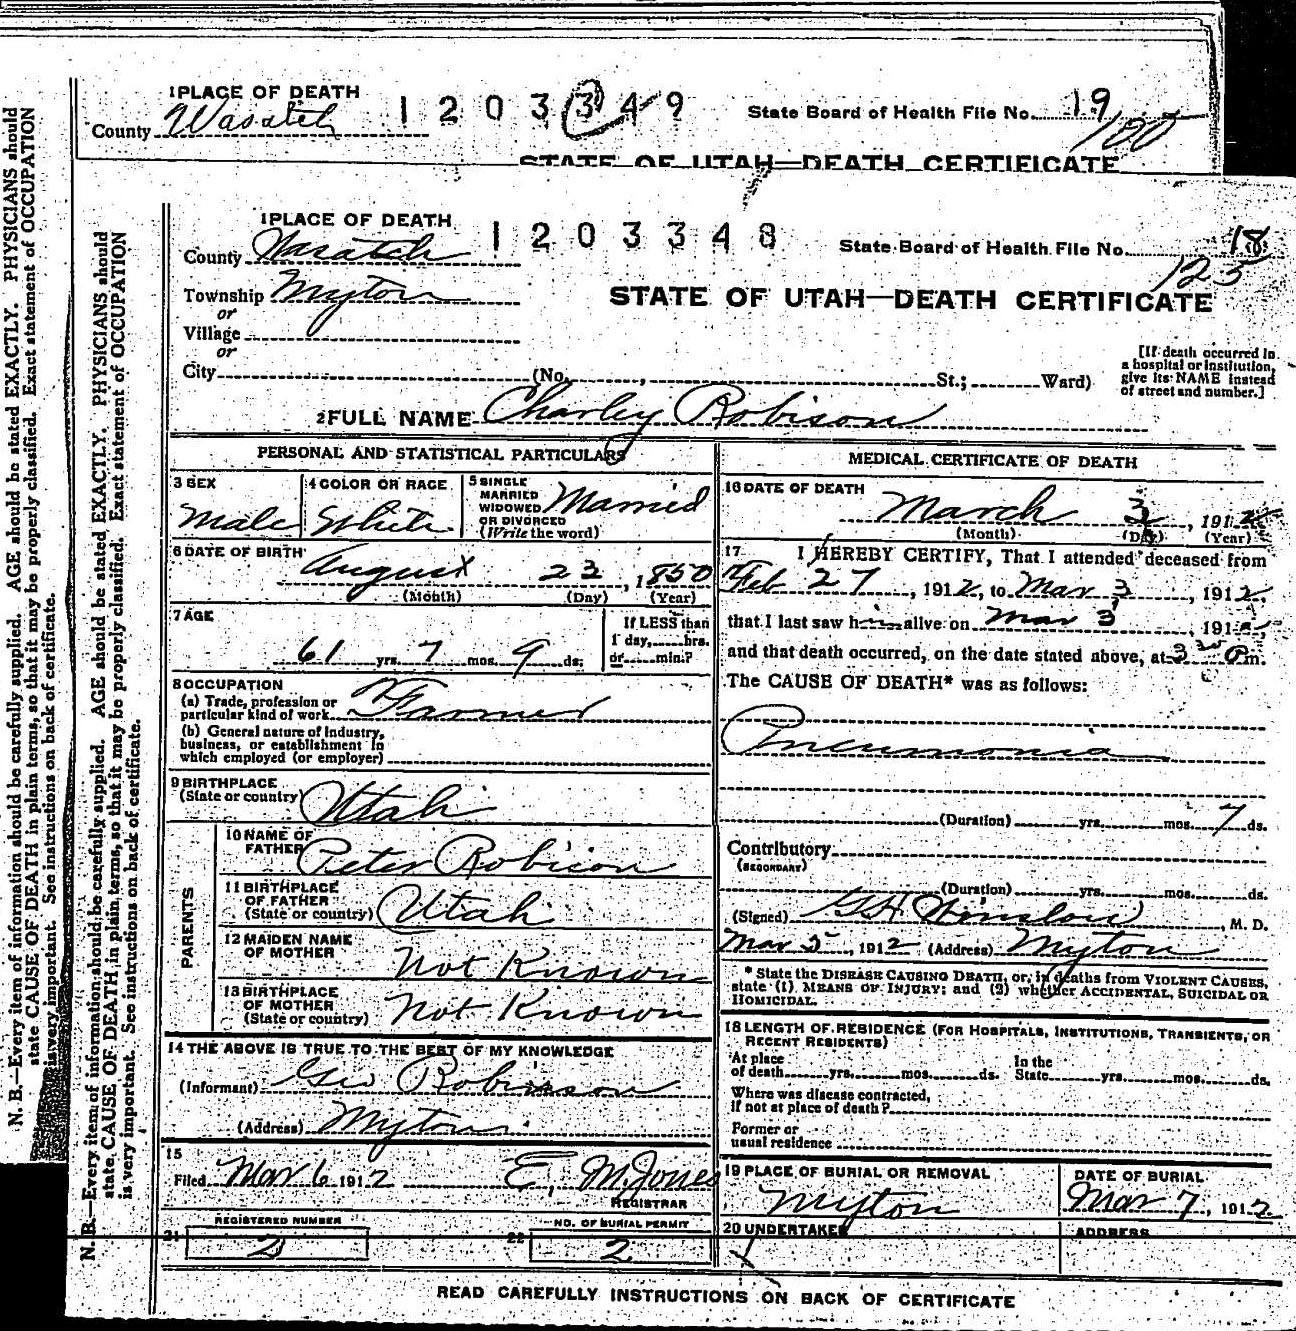 1 PLACE OF DEATH
County Wasatch 1203349 State Board of Health File No. 19
100
STATE OF UTAH—DEATH CERTIFICATE
1 PLACE OF DEATH
County Wasatch 1203348 State Board of Health File No. 18
125
Township Myton STATE OF UTAH—DEATH CERTIFICATE
or
Village
or
City (No. , St.; Ward)
[If death occurred in a hospital or institution, give its NAME instead of street and number.]
2 FULL NAME Charley Robison
PERSONAL AND STATISTICAL PARTICULARS
3 SEX
Male
4 COLOR OR RACE
White
5 SINGLE
MARRIED
WIDOWED
OR DIVORCED
(Write the word)
Married
6 DATE OF BIRTH
August 23, 1850
(Month) (Day) (Year)
7 AGE
61 yrs. 7 mos. 9 ds.
If LESS than
1 day, hrs.
or min.?
8 OCCUPATION
(a) Trade, profession or
particular kind of work Farmer
(b) General nature of industry,
business, or establishment in
which employed (or employer)
9 BIRTHPLACE
(State or country) Utah
PARENTS
10 NAME OF
FATHER Peter Robison
11 BIRTHPLACE
OF FATHER
(State or country) Utah
12 MAIDEN NAME
OF MOTHER Not Known
13 BIRTHPLACE
OF MOTHER
(State or country) Not Known
14 THE ABOVE IS TRUE TO THE BEST OF MY KNOWLEDGE
(Informant) Geo Robinson
(Address) Myton
15
Filed Mar 6 1912 E. M. Jones
REGISTRAR
21 REGISTERED NUMBER
2
22 NO. OF BURIAL PERMIT
2
MEDICAL CERTIFICATE OF DEATH
16 DATE OF DEATH
March 3, 1912
(Month) (Day) (Year)
17 I HEREBY CERTIFY, That I attended deceased from
Feb 27, 1912, to Mar 3, 1912,
that I last saw him alive on Mar 3, 1912,
and that death occurred, on the date stated above, at 3 30 P m.
The CAUSE OF DEATH* was as follows:
Pneumonia
(Duration) yrs. mos. 7 ds.
Contributory
(SECONDARY)
(Duration) yrs. mos. ds.
(Signed) G H Winslow, M. D.
Mar 5, 1912 (Address) Myton
* State the DISEASE CAUSING DEATH, or, in deaths from VIOLENT CAUSES,
state (1) MEANS OF INJURY; and (2) whether ACCIDENTAL, SUICIDAL OR
HOMICIDAL.
18 LENGTH OF RESIDENCE (FOR HOSPITALS, INSTITUTIONS, TRANSIENTS, OR
RECENT RESIDENTS)
At place
of death yrs. mos. ds. In the
State yrs. mos. ds.
Where was disease contracted,
if not at place of death?
Former or
usual residence
19 PLACE OF BURIAL OR REMOVAL
Myton
DATE OF BURIAL
Mar 7, 1912
20 UNDERTAKER
ADDRESS
READ CAREFULLY INSTRUCTIONS ON BACK OF CERTIFICATE
N. B.—Every item of information should be carefully supplied. AGE should be stated EXACTLY. PHYSICIANS should
state CAUSE OF DEATH in plain terms, so that it may be properly classified. Exact statement of OCCUPATION
is very important. See instructions on back of certificate.
N. B.—Every item of information should be carefully supplied. AGE should be stated EXACTLY. PHYSICIANS should
state CAUSE OF DEATH in plain terms, so that it may be properly classified. Exact statement of OCCUPATION
is very important. See instructions on back of certificate.